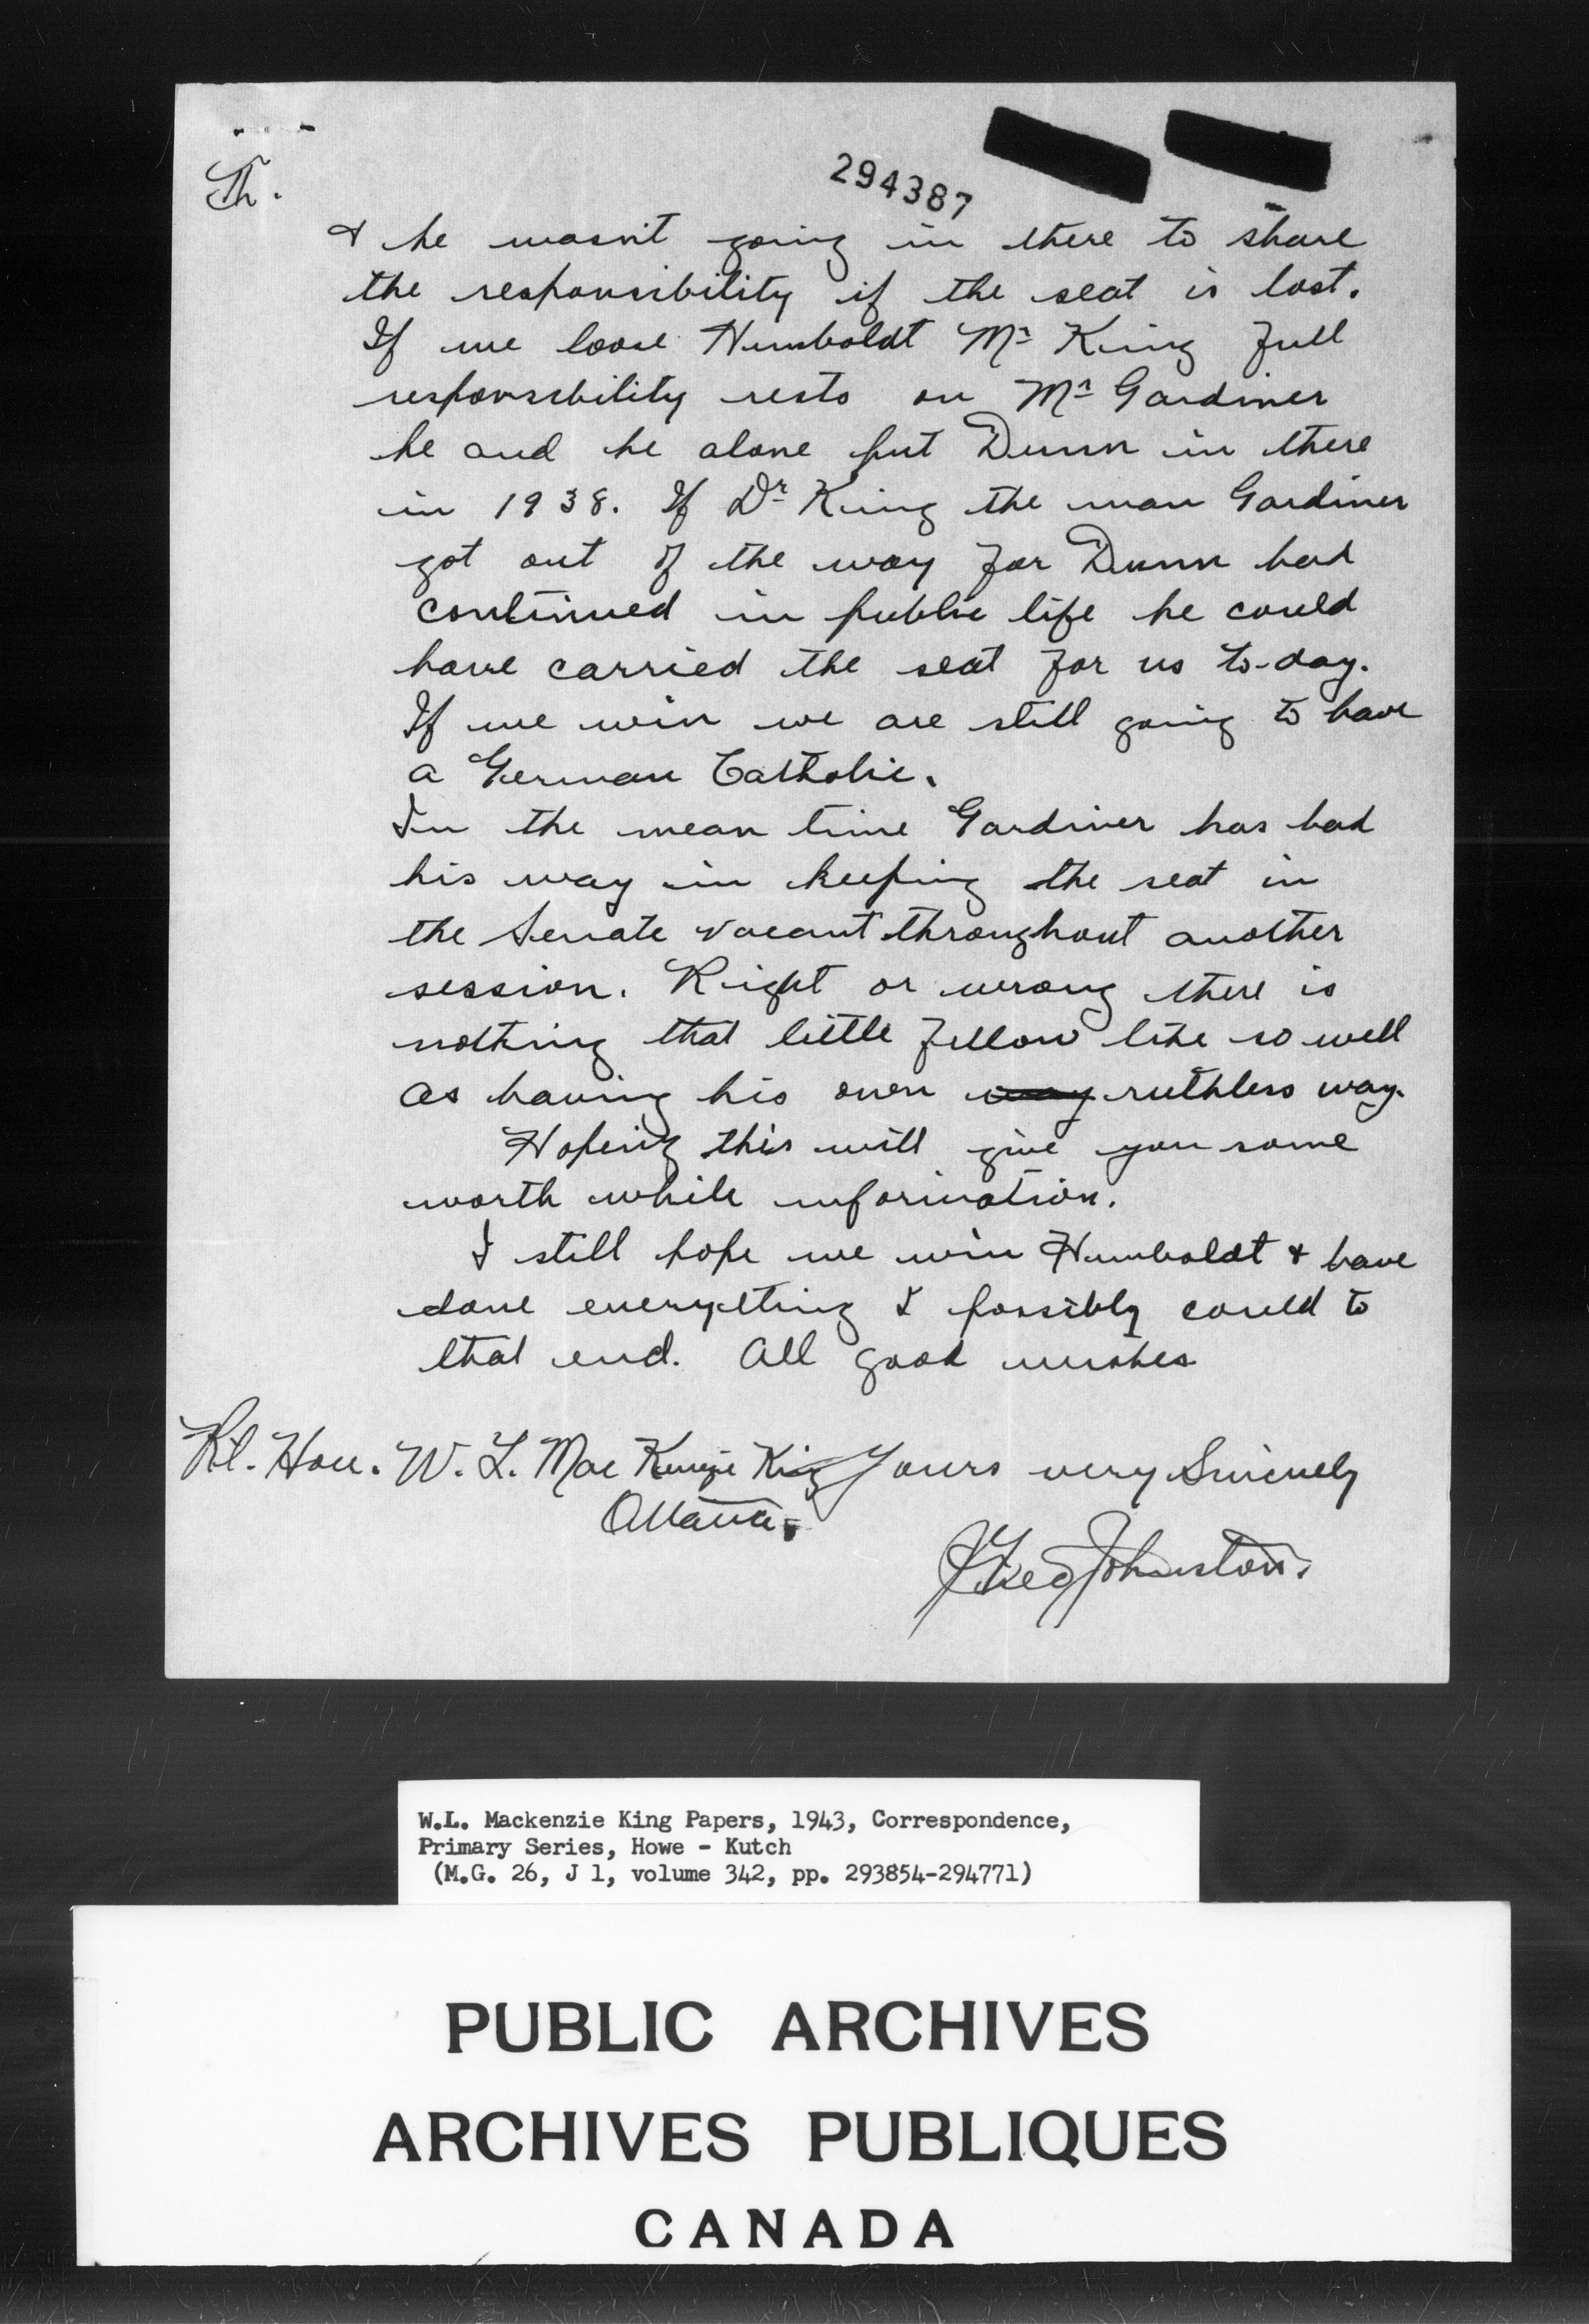 Th.
294387
& he wasn't going in there to share
the responsibility if the seat is lost.
If we loose Humboldt Mr King full
responsibility rests on Mr Gardiner
he and he alone put Dunn in there
in 1938. If Dr King the man Gardiner
got out of the way for Dunn had
continued in public life he could
have carried the seat for us to-day.
If we win we are still going to have
a German Catholic.
In the mean time Gardiner has had
his way in keeping the seat in
the Senate vacant throughout another
session. Right or wrong there is
nothing that little fellow like so well
as having his own way ruthless way.
Hoping this will give you some
worth while information.
I still hope we win Humboldt & have
done everything I possibly could to
that end. All good wishes
Rt. Hon. W. L. MacKenzie King Yours very Sincerely
Ottawa.
J Fred Johnston.
W.L. Mackenzie King Papers, 1943, Correspondence,
Primary Series, Howe - Kutch
(M.G. 26, J 1, volume 342, pp. 293854-294771)
PUBLIC ARCHIVES
ARCHIVES PUBLIQUES
CANADA